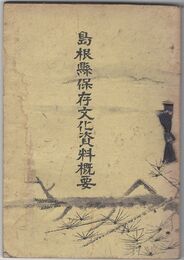 島根縣保存文化資料概要